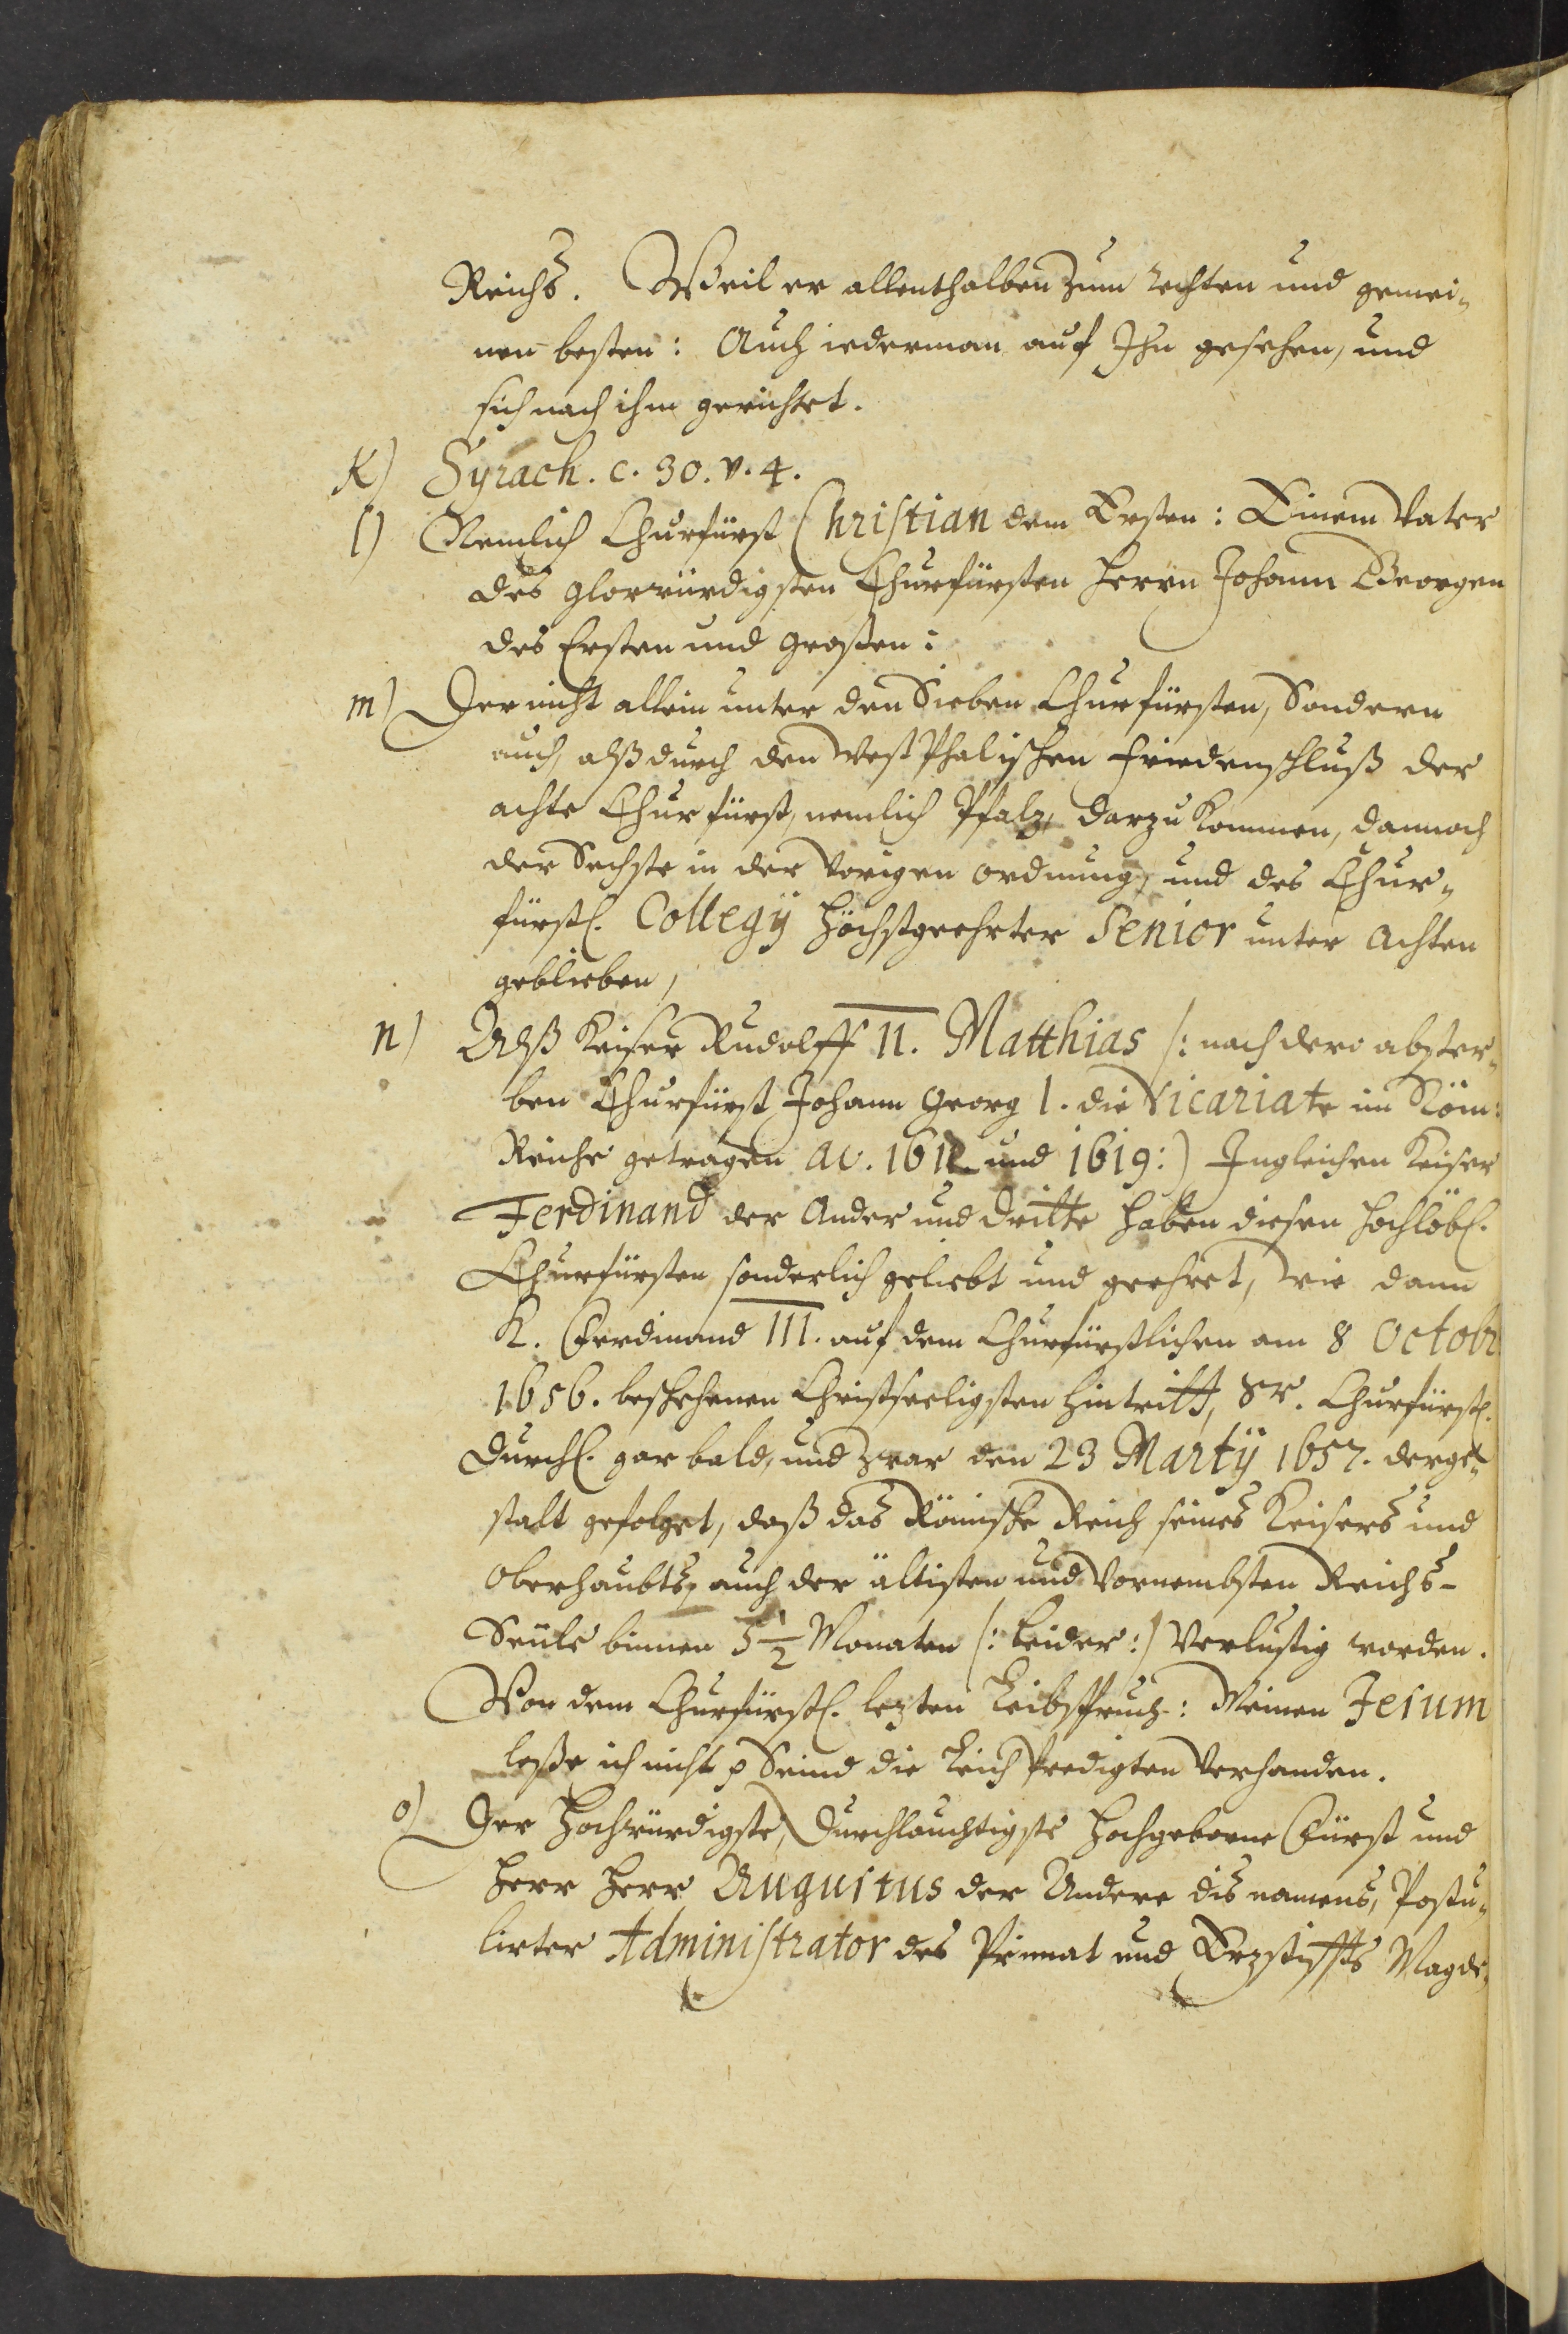 Reichs. Weil er allenthalben zum rechten und gemei¬
nen besten: Auch iederman auf Ihn gesehen, und
sich nach ihm gerichtet.
K) Syrach. c. 30. v. 4.
l) Nemlich Churfürst Christian dem Ersten: Einem Vater
des Glorwürdigsten Churfürsten Herrn Johann Georgen
des Ersten und Großen:
m) Der nicht allein unter den Sieben Churfürsten, Sondern
auch, alß durch den WestPhalischen Friedenschluß der
achte Churfürst, nemlich Pfalz, darzu kommen, dannoch
der Sechste in der Vorigen ordnung, und des Chur¬
fürstl. Collegÿ höchstgeehrter Senior unter Achten
geblieben,
n) Alß Keiser Rudolff II. Matthias /: nach dero abster¬
ben Churfürst Johann Georg I. die Vicariate im Röm:
Reiche getragen ao. 1612 und 1619:) Ingleichen Keiser
Ferdinand der Ander und dritte haben diesen hochlöbl.
Churfürsten, sonderlich geliebt und geehret, wie dann
K. Ferdinand III. auf dem Churfürstlichen am 8 Octobr
1656. beschehenen Christseeligsten hintritt, Sr. Churfürstl.
Durchl. gar bald, und zwar den 23 Martÿ 1657. derge¬
stalt gefolget, daß das Römische Reich seines Keisers und
Oberhaubts, auch der ältisten und Vornembsten Reichs-
Seüle binnen 5 1/2 Monaten /: leider:/ Verlustig worden.
Von dem Churfürstl. lezten Leibspruch: Meinen Jesum
laße ich nicht p Seind die LeichPredigten Verhanden.
o) Der Hochwürdigste, Durchlauchtigste Hochgeborne Fürst und
Herr Herr Augustus der Andere dis namens, Postu¬
lirter Administrator des Primat und Erzstiffts Magde¬